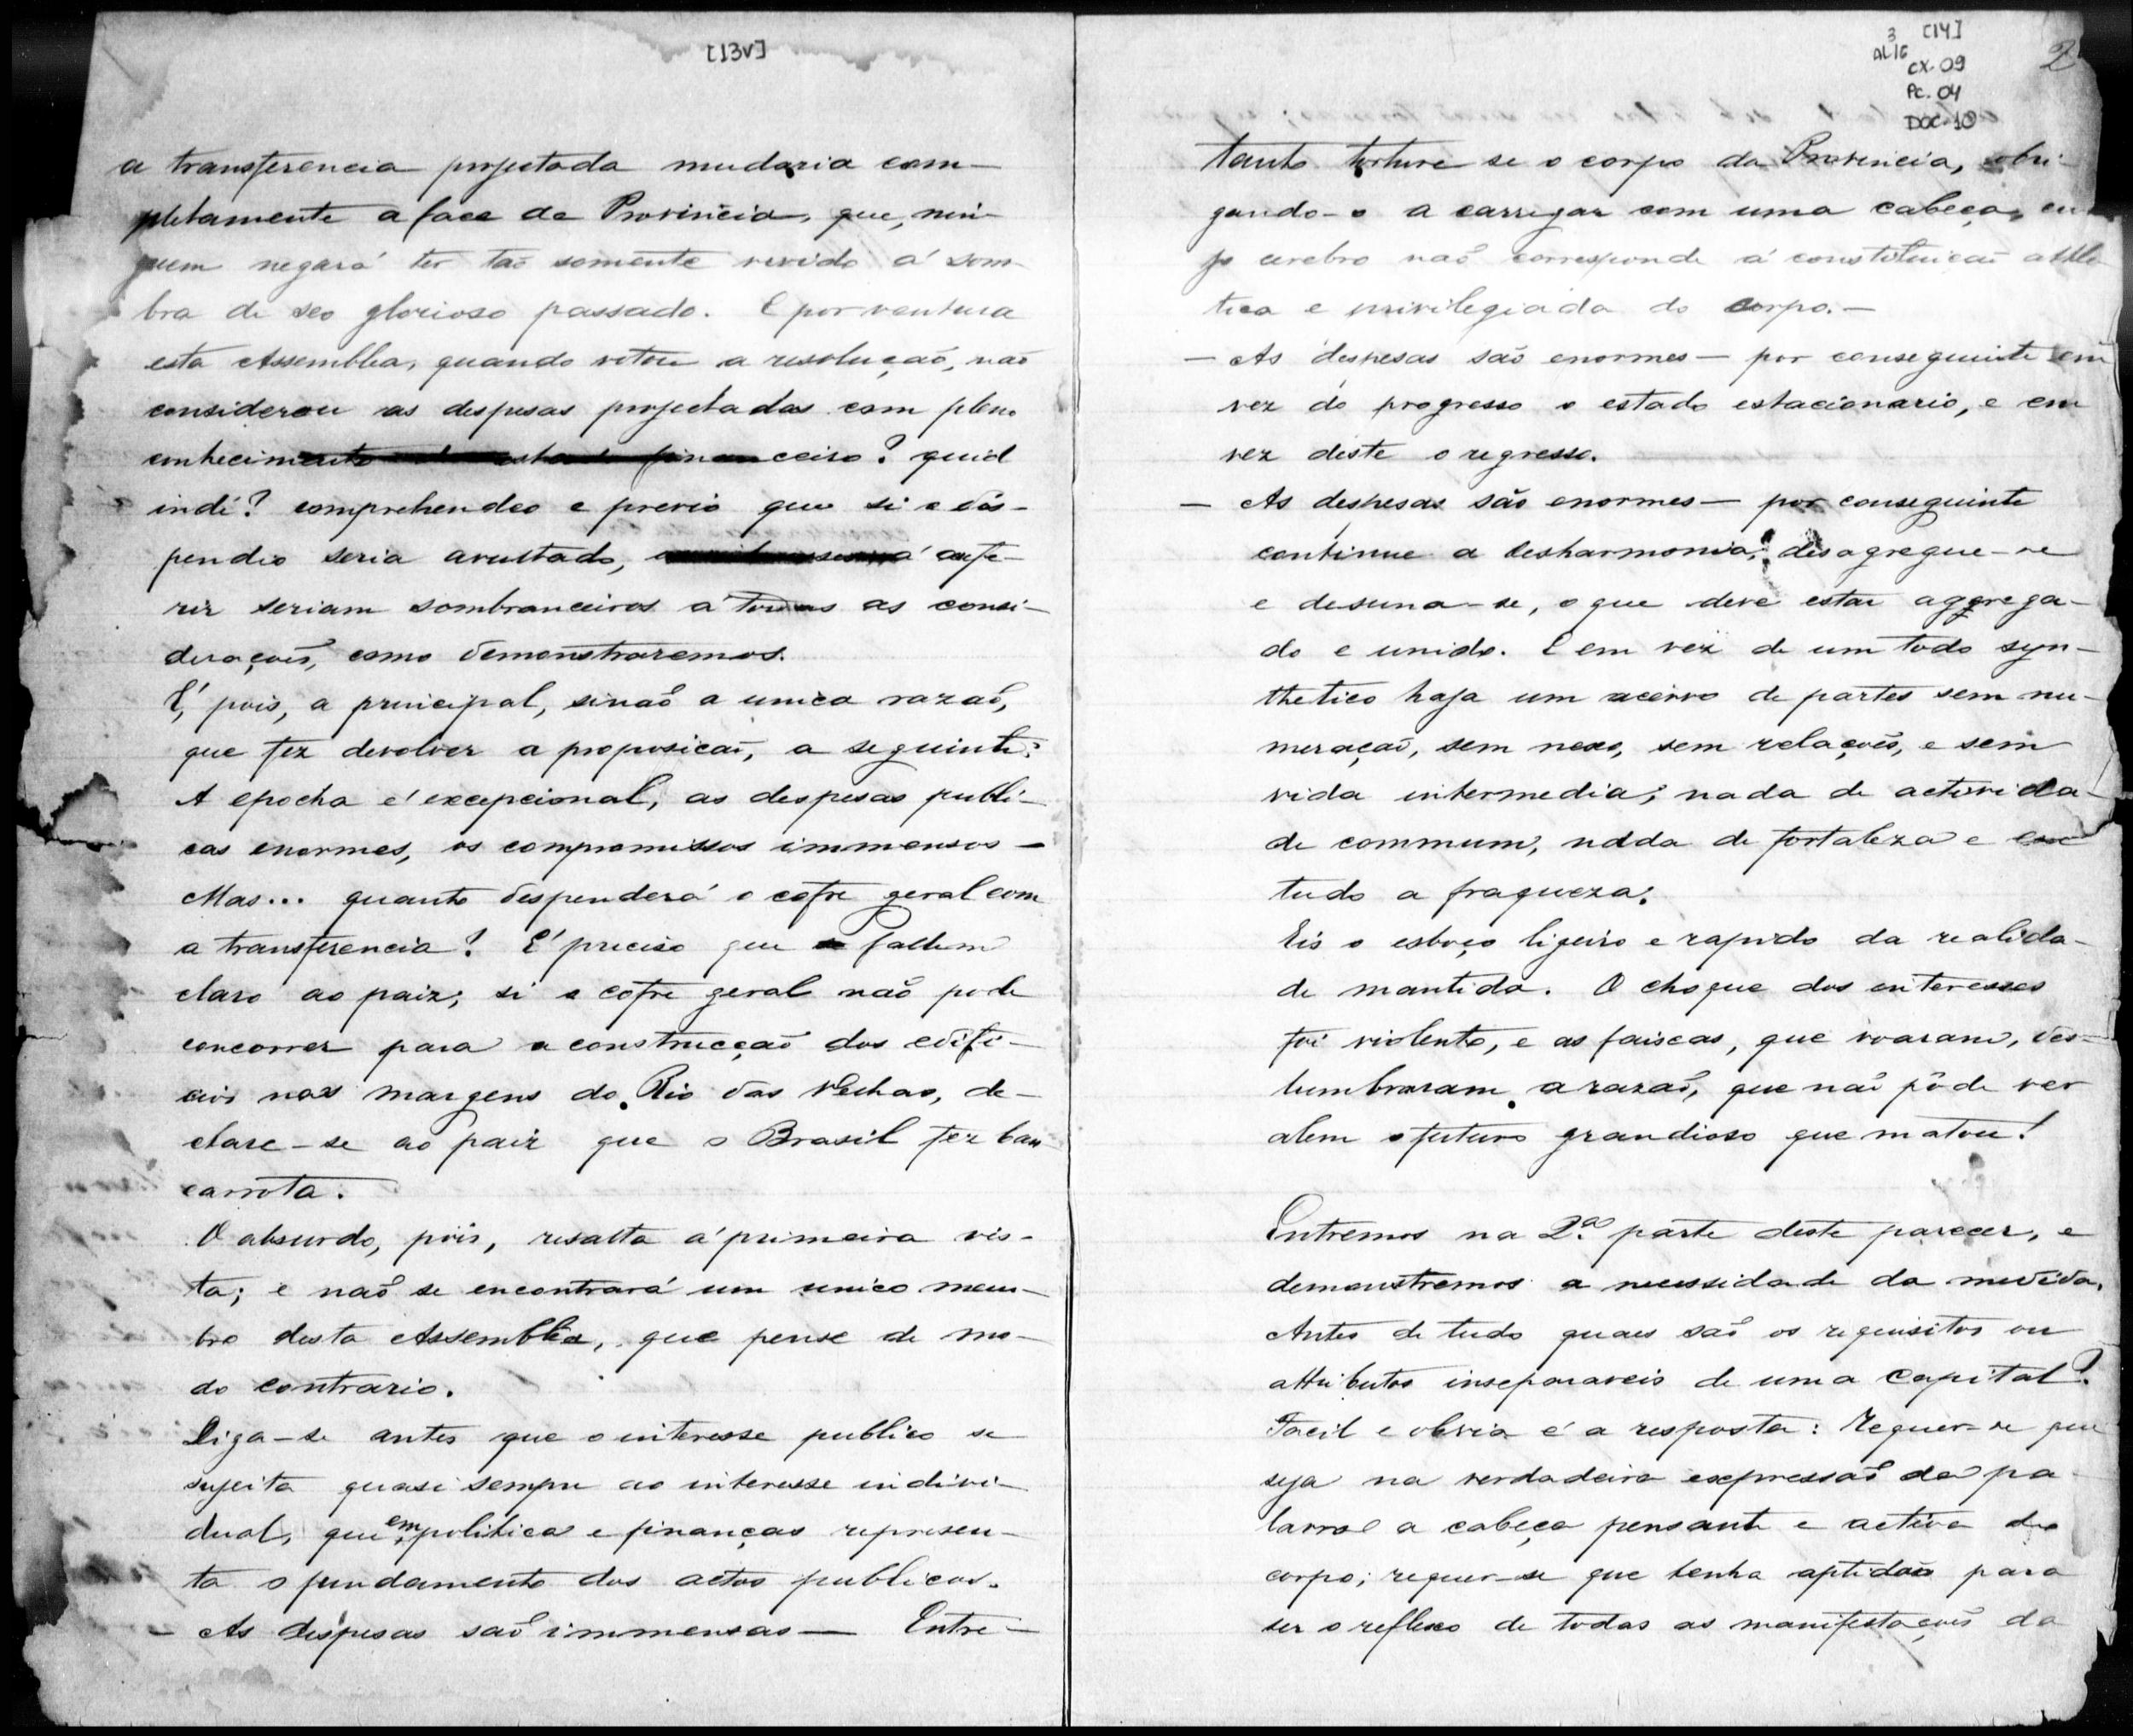 [13v]
a transferencia projectada mudaria com-
pletamente a face da Provincia, que, nin-
guem negará ter taõ somente vivido á som-
bra de seo glorioso passado. E porventura
esta Assemblea, quando votou a resoluçaõ, naõ
considerou as despesas projectadas com pleno
conhecimento do estado financeiro? quid
indé? comprehendeo e previo que si o dis-
pendio seria avultado, á aufe-
rir seriam sombranceiros a todas as consi-
deraçoẽs, como demonstraremos.
É, pois, a principal, sinaõ a unica razaõ,
que fez devolver a proposicaõ, a seguinte:
A epocha é excepcional, as despesas publi-
cas enormes, os compromissos immensos —
Mas... quanto despenderá o cofre geral com
a transferencia? É preciso que fallem
claro ao paiz; si o cofre geral naõ pode
concorrer para a construcçaõ dos edifi-
cios nas margens do Rio das Velhas, de-
clare-se ao paiz que o Brasil fez ban
carrota.
O absurdo, pois, resalta á primeira vis-
ta; e naõ se encontrará um unico mem-
bro desta Assemblea, que pense de mo-
do contrario.
Diga-se antes que o interesse publico se
sujeita quasi sempre ao interesse indivi-
dual, que em politica e finanças represen-
ta o fundamento dos actos publicos.
— As despesas saõ immensas — Entre-
[14]
3
AL16
CX. 09
PC. 04
DOC. 10
2
tanto torture se o corpo da Provincia, obri-
gando-o a carregar com uma cabeça, cu
jo cerebro naõ corresponde á constituicaõ athle
tica e privilegiada do corpo. —
— As despesas são enormes — por conseguinte em
vez do progresso o estado estacionario, e em
vez deste o regresso.
— As despesas são enormes — por conseguinte
continue a desharmonia; desagregue-se
e desuna-se, o que deve estar aggrega-
do e unido. E em vez de um todo syn-
thetico haja um acervo de partes sem nu-
meraçaõ, sem nexo, sem relaçoẽs, e sem
vida intermedia; nada de activida-
de commum, nada de fortaleza e em
tudo a fraqueza.
Eis o esboço ligeiro e rapido da realida-
de mantida. O choque dos interesses
foi violento, e as faiscas, que voaram, des-
lumbraram a razaõ, que naõ pôde ver
alem o futuro grandioso que matou!
Entremos na 2.ª parte deste parecer, e
demonstremos a necessidade da medida.
Antes de tudo quaes saõ os requisitos ou
attributos inseparaveis de uma Capital?
Facil e obvia é a resposta: Requer-se que
seja na verdadeira expressaõ da pa
lavra a cabeça pensante e activa do
corpo; requer-se que tenha aptidaõ para
ser o reflexo de todas as manifestaçoẽs da